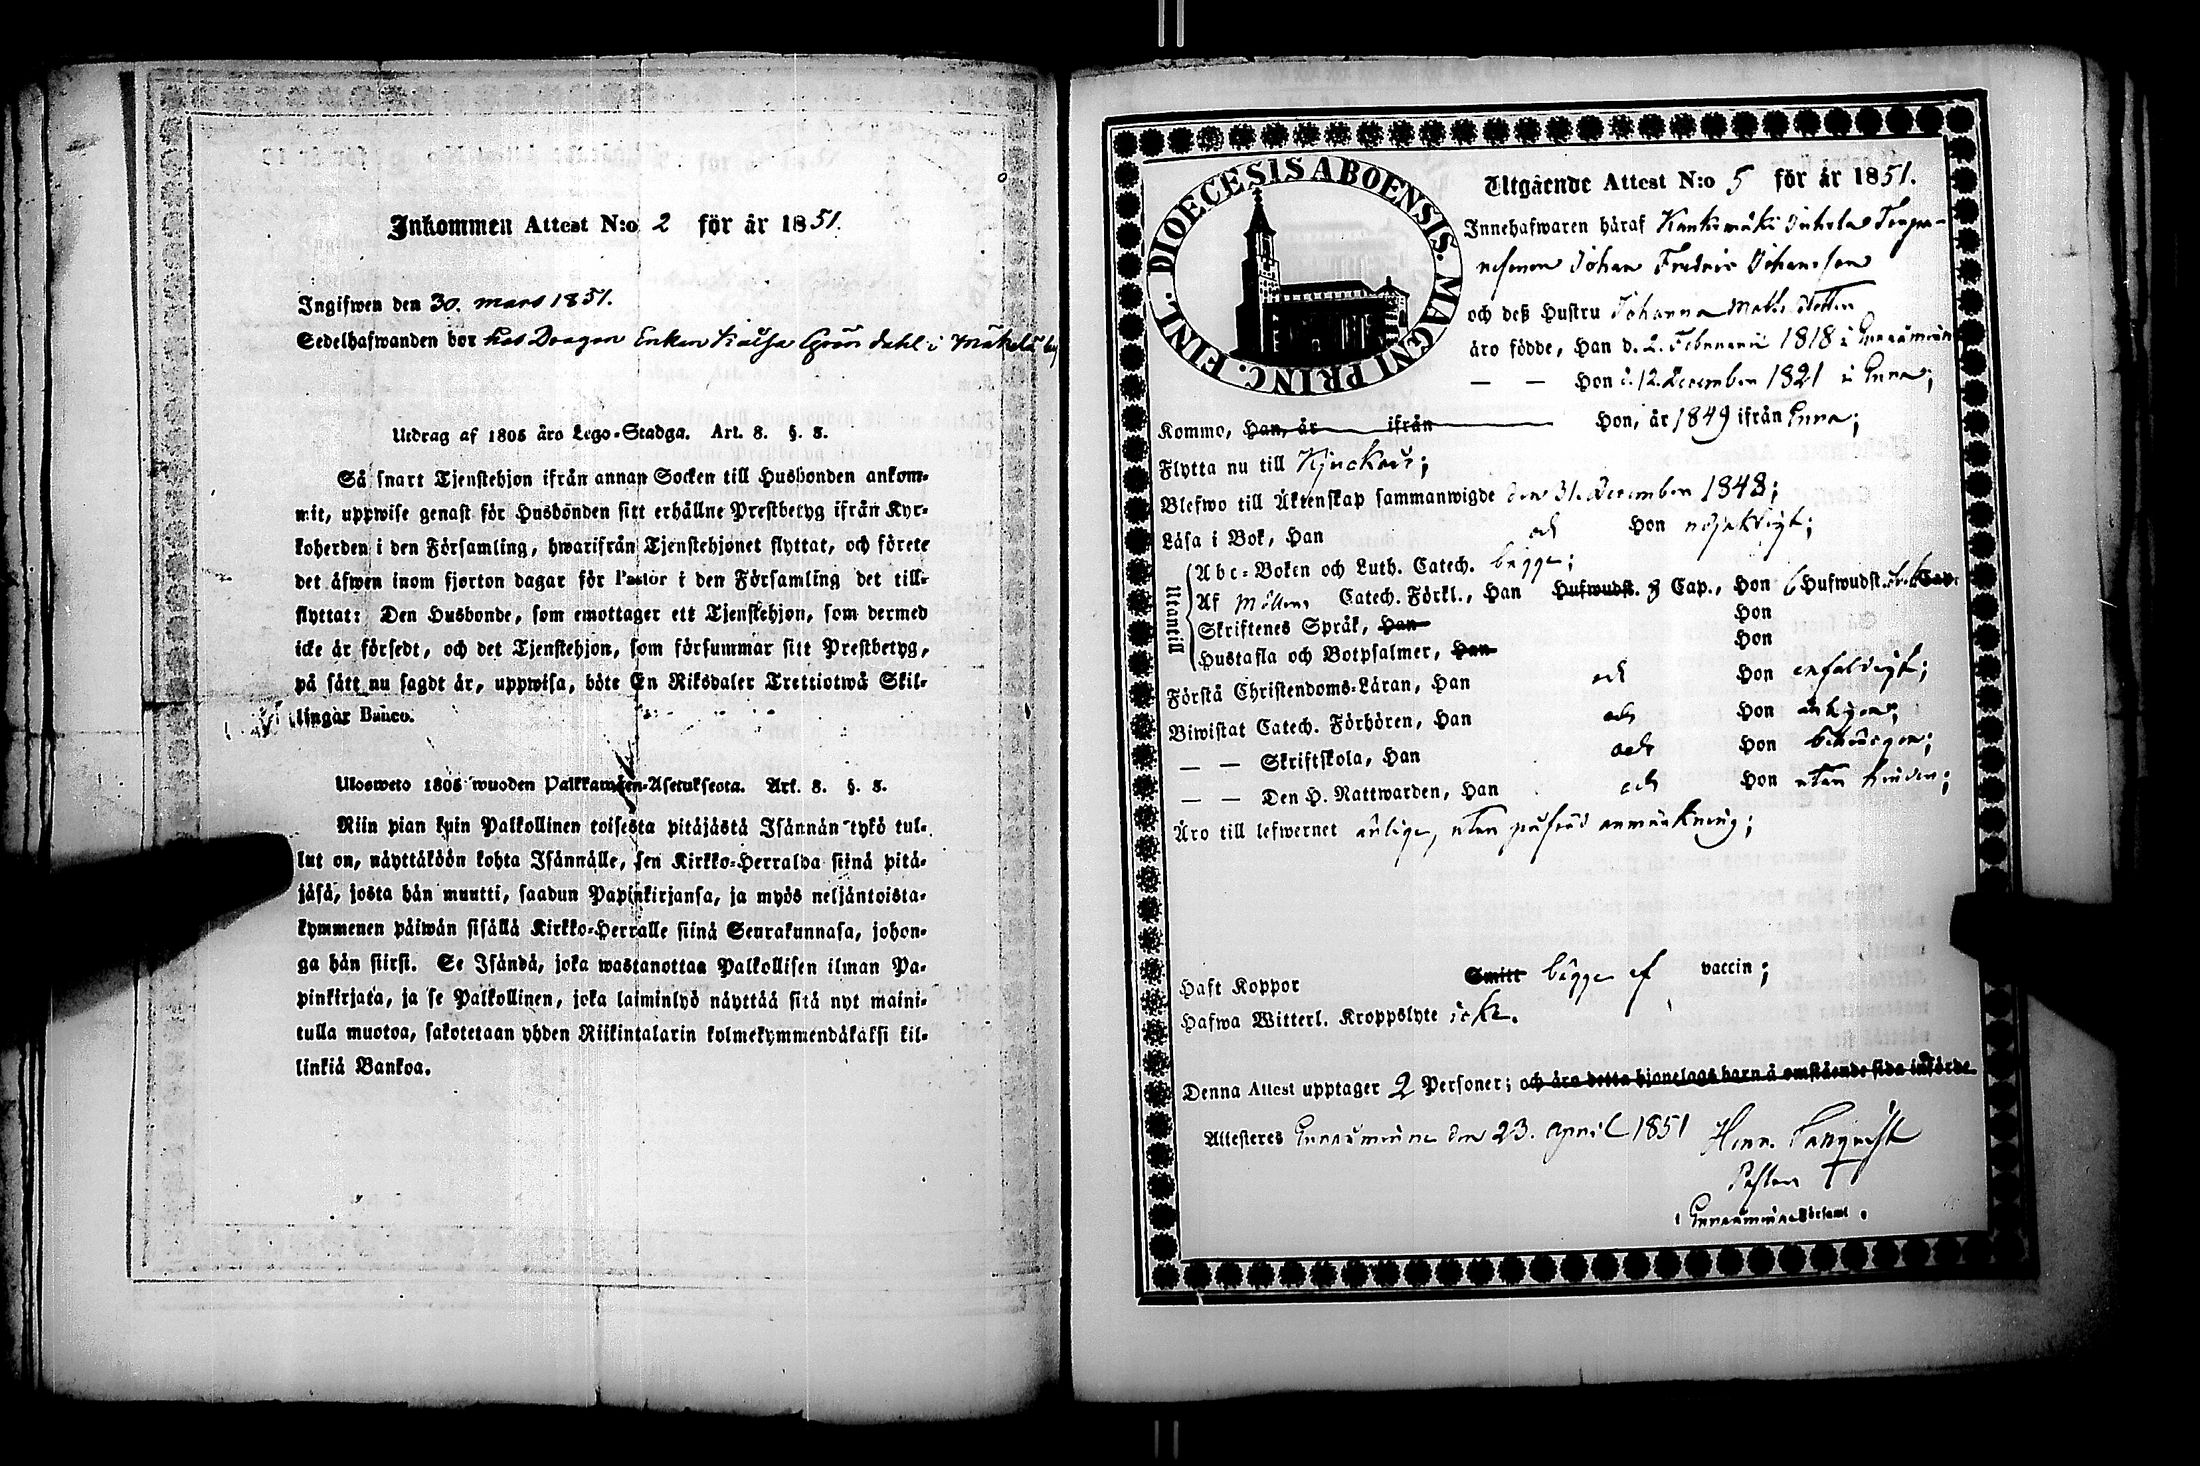 Inkommen Attest N:o 2 för år 1851.
Ingifwen den 30. mars 1851.
Sedelhafwanden bor hos Dragon Enkan Gröndahl i Mäkelä by
Utdrag af 1805 års Lego-Stadga. Art. 8. §. 8.
Så snart Tjenstehjon ifrån annan Socken till Husbonden ankom-
mit, uppwise genast för Husbonden sitt erhållne Prestbetyg ifrån Kyr-
koherden i den Församling, hwarifrån Tjenstehjonet flyttat, och förete
det äfwen inom fjorton dagar för Pastor i den Församling det till-
flyttat: Den Husbonde, som emottager ett Tjenstehjon, som dermed
icke är försedt, och det Tjenstehjon, som försummar sitt Prestbetyg,
på sätt nu sagdt är, uppwisa, böte En Riksdaler Trettiotwå Skil-
lingar Banco.
Ulosweto 1805 wuoden Palkkawäen-Asetuksesta. Art. 8. §. 8.
Niin pian kuin Palkollinen toisesta pitäjästä Isännän tykö tul-
lut on, näyttäköön kohta Isännälle, sen Kirkko-Herralda siinä pitä-
jäsä, josta hän muutti, saadun Papinkirjansa, ja myös neljäntoista-
kymmenen päiwän sisällä Kirkko-Herralle siinä Seurakunnasa, johon-
ga hän siirsi. Se Isändä, joka wastanottaa Palkollisen ilman Pa-
pinkirjata, ja se Palkollinen, joka laiminlyö näyttää sitä nyt maini-
tulla muotoa, sakotetaan yhden Riikintalarin kolmekymmendäkaksi kil-
linkiä Bankoa.
DIOECESIS ABOENSIS. MAGNI PRINC. FINL.
Utgående Attest N:o 5 för år 1851.
Innehafwaren häraf Torpa-
resonen Johan Fredric Johansson
och deß Hustru Johanna Matts dotter
äro födde, Han d. 2. Februarii 1818 i
— — Hon d. 12. December 1821 i
Kommo, Han, år ifrån Hon, år 1849 ifrån
Flytta nu till
Blefwo till Äktenskap sammanwigde den 31. December 1848;
Läsa i Bok, Han och Hon nöjaktigt;
Utantill
Abc-Boken och Luth. Catech. bägge;
Af Möllers Catech. Förkl., Han Hufwudst. 8 Cap., Hon 6 Hufwudst. Cap.
Skriftenes Språk, Han Hon
Hustafla och Botpsalmer, Han Hon
Förstå Christendoms-Läran, Han och Hon enfaldigt;
Biwistat Catech. Förhören, Han och Hon
— — Skriftskola, Han och Hon behörigen;
— — Den H. Nattwarden, Han och Hon utan hinder;
Äro till lefwernet ärlige, utan påförd anmärkning;
Haft Koppor Smitt bägge af vaccin;
Hafwa Witterl. Kroppslyte icke.
Denna Attest upptager 2 Personer; och äro detta hjonelags barn å omstående sida införde.
Attesteres den 23. April 1851 Henr.
Pastor
i Församl.